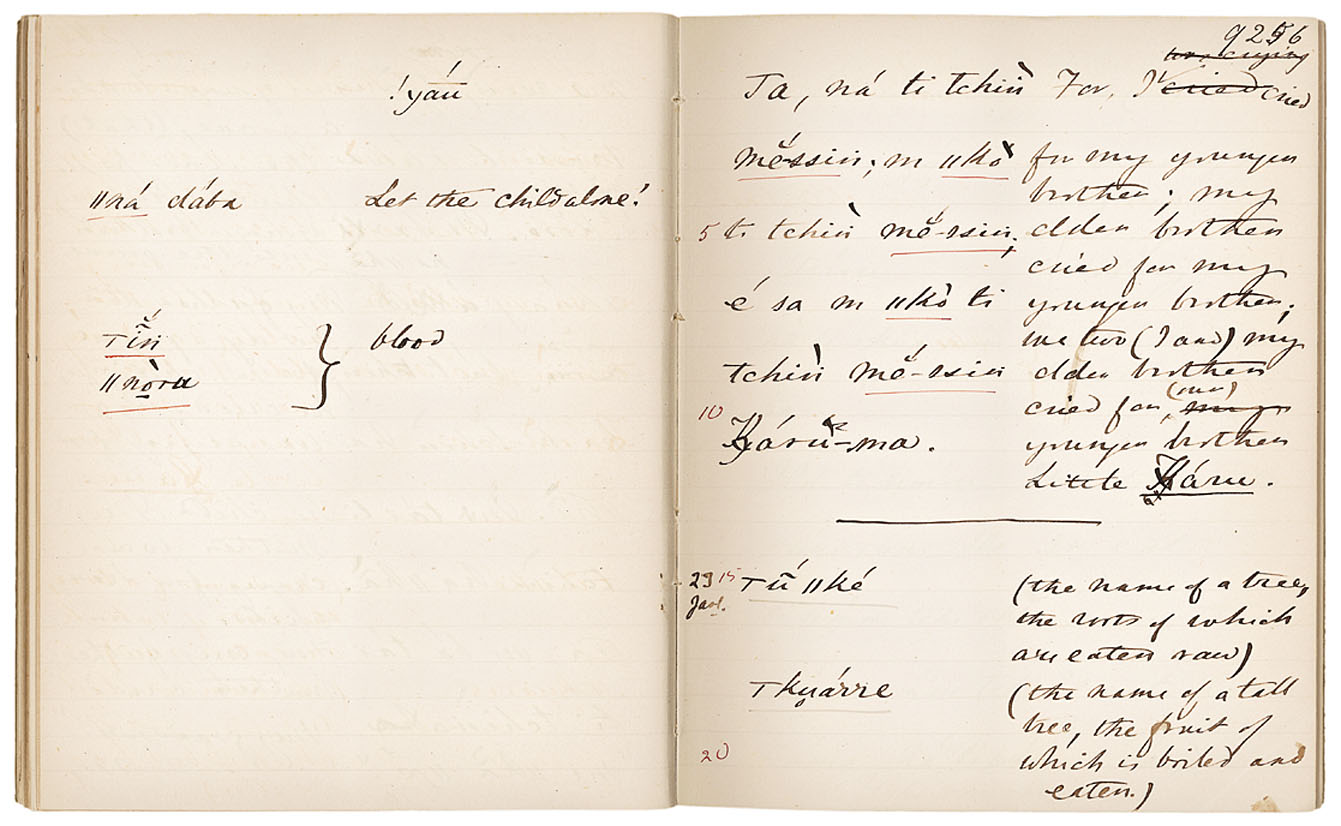 !yáū
ǁná dába Let the child alone!
ǀĭñ } blood
ǁnòru
9256
was crying
Ta, ná ti tchiǹ For, I cried cried
mĕ́ssin; m ǁkò for my younger
brother; my
5 ti tchiǹ mĕ́-ssin; elder brother
cried for my
é sa m ǁkò ti younger brother;
we two (I and) my
tchiǹ mĕ́-ssin elder brother
10 cried for (our) my
Káru-ma. younger brother
Little Káru.
23 Janl. 15 Tū́ ǁké (the name of a tree,
the roots of which
are eaten raw)
Tkuárre (the name of a tall
tree, the fruit of
20 which is boiled and
eaten.)